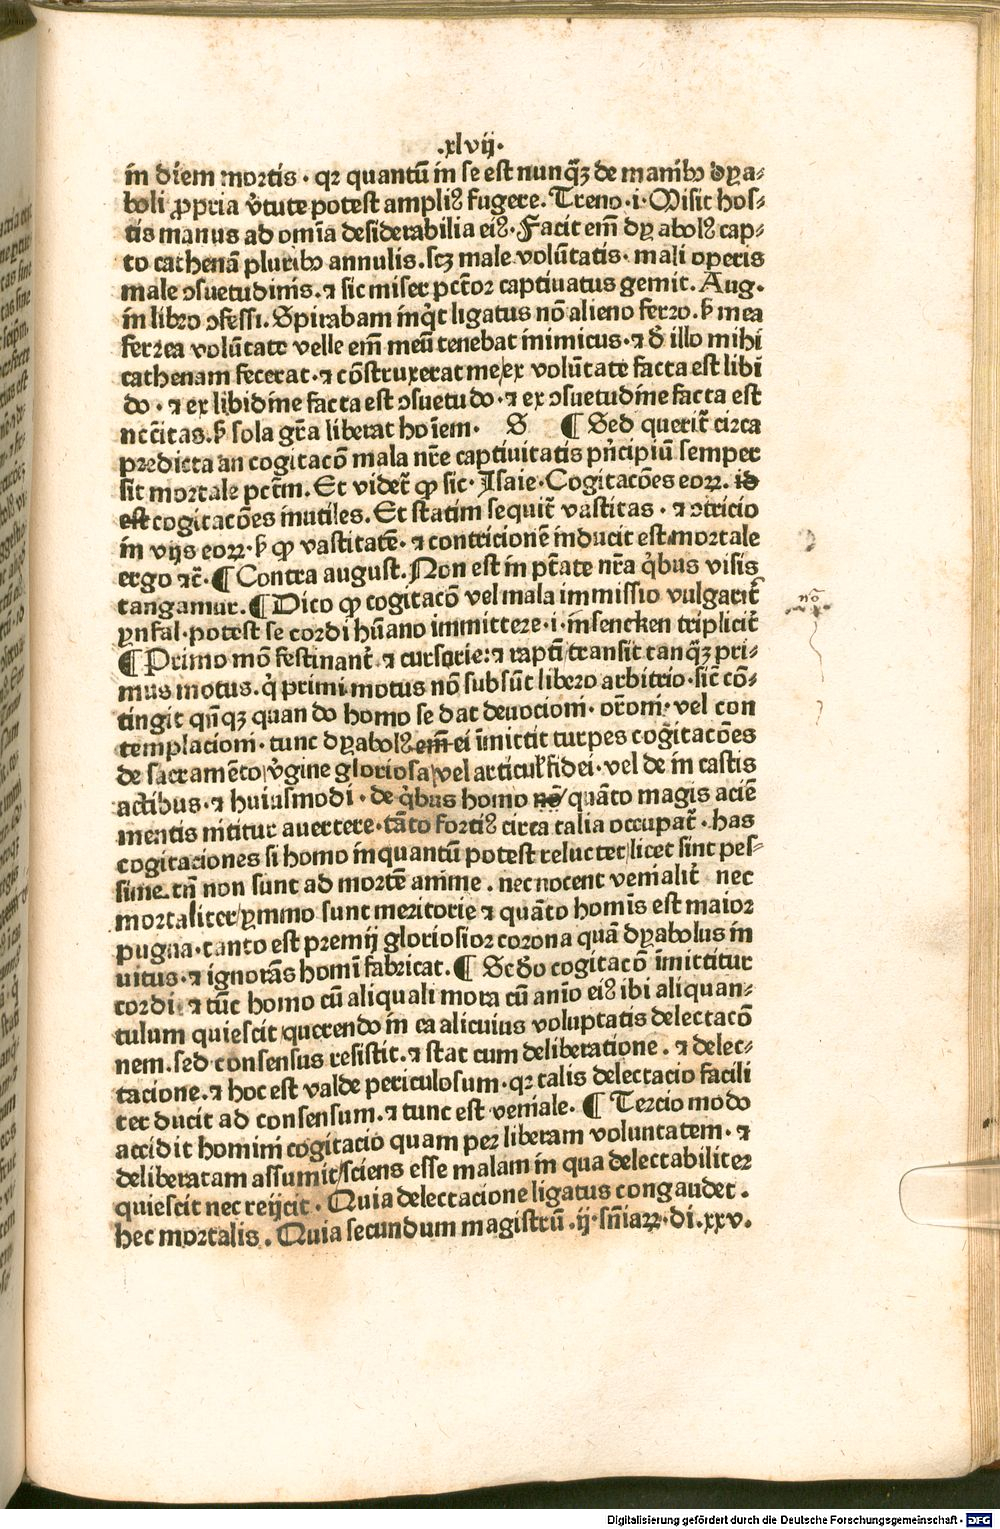 .xlvij.
in diem mortis . qꝛ quantū in se est nunq̄ꝫ de manibꝰ dya⸗
boli ꝓpria v̾tute potest ampliꝰ fugere. Treno . i . Misit hos⸗
tis manus ad omīa desiderabilia eiꝰ. Facit em̄ dyabolꝰ cap⸗
to cathenā pluribꝰ annulis. scꝫ male volūtatis . mali operis
male ɔsuetudinis. ⁊ sic miser pctōr captiuatus gemit. Aug.
in libro ɔfessi. Spirabam inq̇t ligatus nō alieno ferro. ẜ mea
ferrea volūtate velle em̄ meū tenebat inimicus . ⁊ d̾ illo mihi
cathenam fecerat . ⁊ cōstruxerat me/ex volūtate facta est libi
do . ⁊ ex libidine facta est ɔsuetudo . ⁊ ex ɔsuetudine facta est
nccītas. ẜ sola grā liberat hoīem . S ¶ Sed querit̄ circa
predicta an cogitacō mala nr̄e captiuitatis pn̾cipiū semper
sit mortale pctm̄. Et videt̄ ꝙ sic . Isaie . Cogitacōes eoꝝ. id
est cogitacōes inutiles. Et statim sequit̄ vastitas . ⁊ ɔtricio
in vijs eoꝝ . ẜ ꝙ vastitatē . ⁊ contricionē inducit est mortale
ergo ⁊c̄ . ¶ Contra august. Non est in ptāte nr̄a q̇bus visis
tangamur. ¶ Dico ꝙ cogitacō vel mala immissio vulgarit̄
ynfal . potest se cordi hūano immittere . i . insencken triplicit̄
¶ Primo mō festinant̄ . ⁊ cursorie: ⁊ raptī transit tanq̄ꝫ pri⸗
mus motus. q̇ primi motus nō subsūt libero arbitrio . sic̄ cō⸗
tingit qn̄qꝫ quando homo se dat deuocioni . orōni . vel con
templacioni . tunc dyabolꝰ em̄ ei īmittit turpes cogitacōes
de sacramēto/v̾gine gloriosa/vel articul̄ fidei . vel de in castis
actibus . ⁊ huiusmodi . de q̇bus homo nō/quāto magis aciē
mentis nititur auertere . tāto fortiꝰ circa talia occupat̄ . has
cogitaciones si homo inquantū potest reluctet/licet sint pes⸗
sime tn̄ non sunt ad mortē anime . nec nocent venialit̄ nec
mortaliter/ymmo sunt meritorie ⁊ quāto hominis est maior
pugna . tanto est premij gloriosior corona quā dyabolus in
uitus . ⁊ ignorās homī fabricat. ¶ Scd̾o cogitacō īmittitur
cordi . ⁊ tūc homo cū aliquali mora cū anīo eiꝰ ibi aliquan⸗
tulum quiescit/querendo in ea alicuius voluptatis delectacō
nem. sed consensus resistit. ⁊ stat cum deliberatione . ⁊ delec⸗
tacione. ⁊ hoc est valde periculosum . qꝛ talis delectacio facili
ter ducit ad consensum. ⁊ tunc est veniale. ¶ Tercio modo
accidit homini cogitacio quam per liberam voluntatem . ⁊
deliberatam assumit/sciens esse malam in qua delectabiliter
quiescit nec reijcit . Quia delectacione ligatus congaudet .
hec mortalis . Quia secundum magistrū . ij . sn̄iaꝝ . di . xxv.
nō
Digitalisierung gefördert durch die Deutsche Forschungsgemeinschaft - DFG